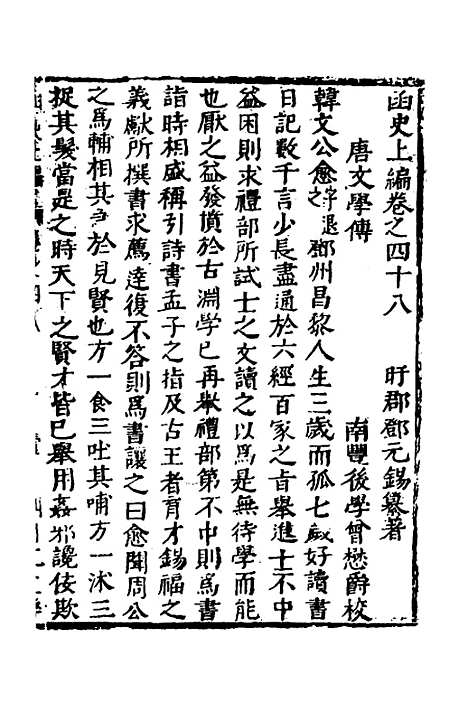 函史上編卷之四十八　盱郡鄧元錫纂著
唐文學傳　南豐後學曾懋爵校
韓文公愈字退之鄧州昌黎人生三歲而孤七歲好讀書
日記數千言少長盡通於六經百家之旨舉進士不中
益困則求禮部所試士之文讀之以爲是無待學而能
也厭之益發憤於古淵學已再舉禮部第不中則爲書
詣時相盛稱引詩書孟子之指及古王者育才錫福之
義獻所撰書求薦達復不答則爲書讓之曰愈聞周公
之爲輔相其急於見賢也方一食三吐其哺方一沐三
捉其髮當是之時天下之賢才皆已舉用姦邪讒佞欺